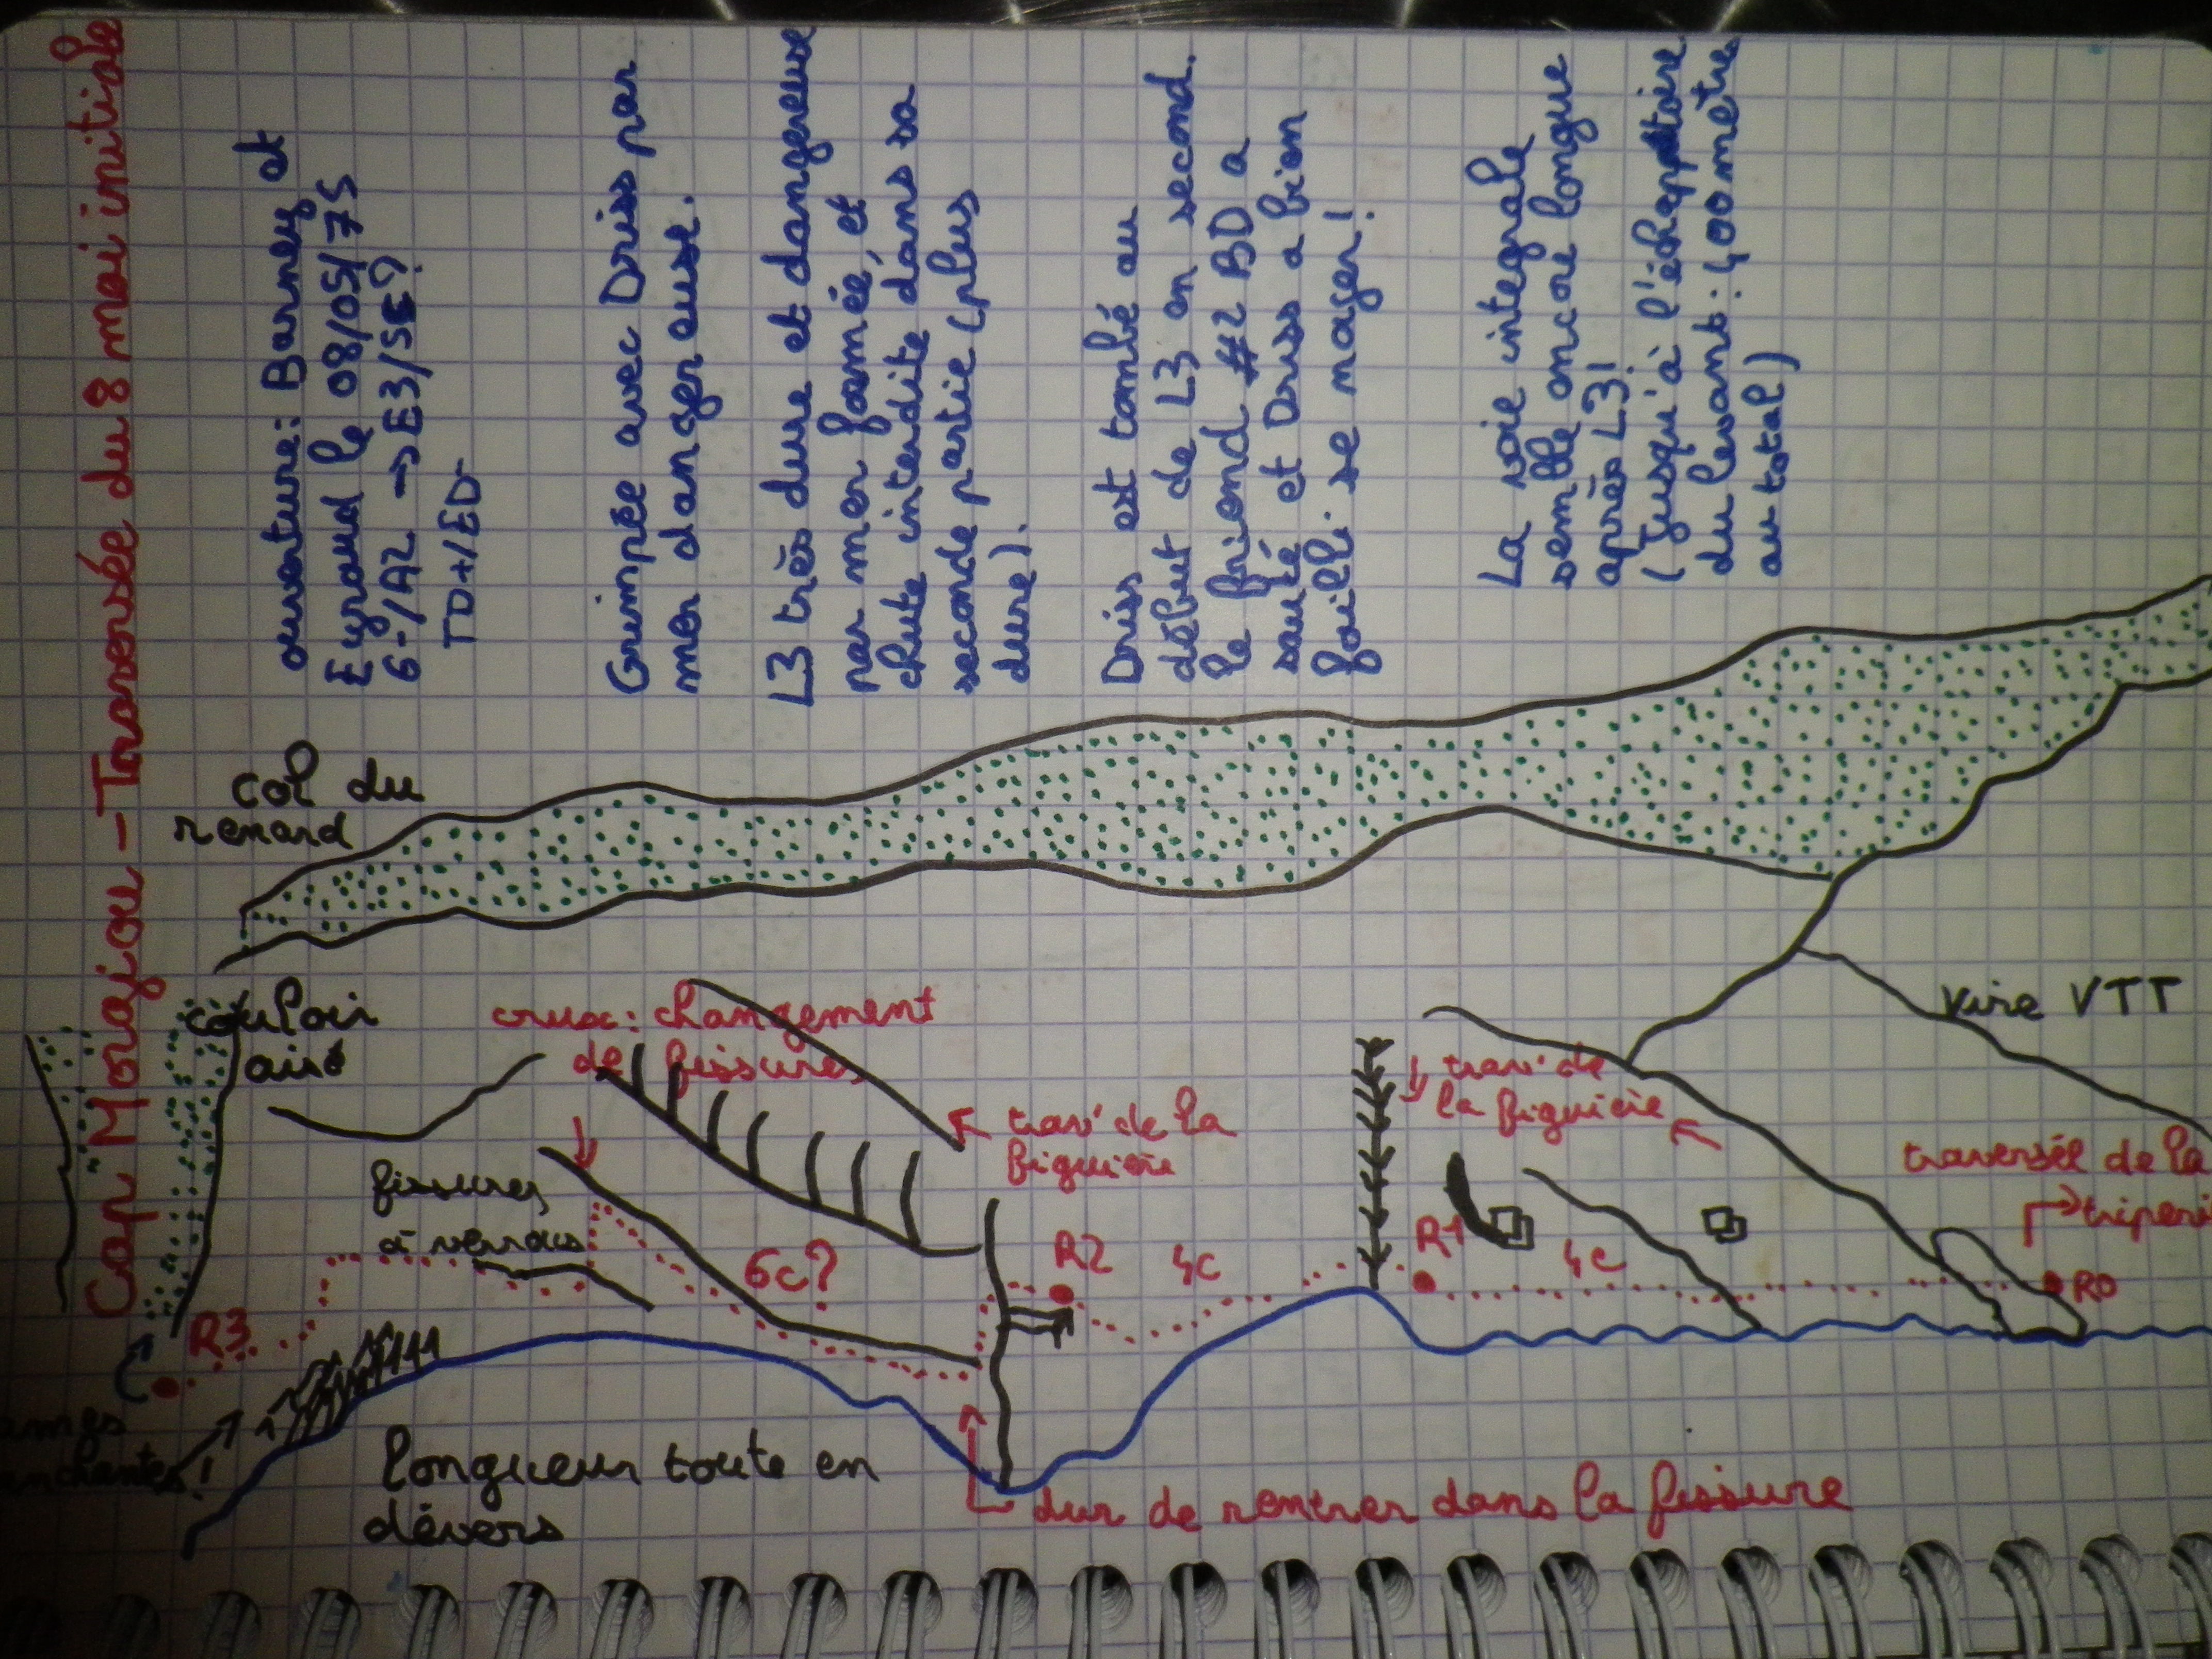 Cap Morgiou - Traversée du 8 mai initiale
ouverture: Barney et
Eygraud le 08/05/75
6-/A2 → E3/5c?
TD+/ED-
Grimpée avec Driss par
mer dangereuse.
L3 très dure et dangereuse
par mer formée, et
chute interdite dans sa
seconde partie (plus
dure).
Driss est tombé au
début de L3 en second.
le friend #2 BD a
sauté et Driss a bien
failli se nager!
La voie integrale
semble encore longue
après L3!
(jusqu'à l'échappatoire
du levant: 400 mètres
au total)
col du
renard
couloir
aisé
crux: changement
de fissures
trav' de la
figuière
trav' de
la figuière
vire VTT
traversée de la
fissures
à verrous
6c?
R2
4c
R1
4c
R0
R3
longueur toute en
dévers
dur de rentrer dans la fissure